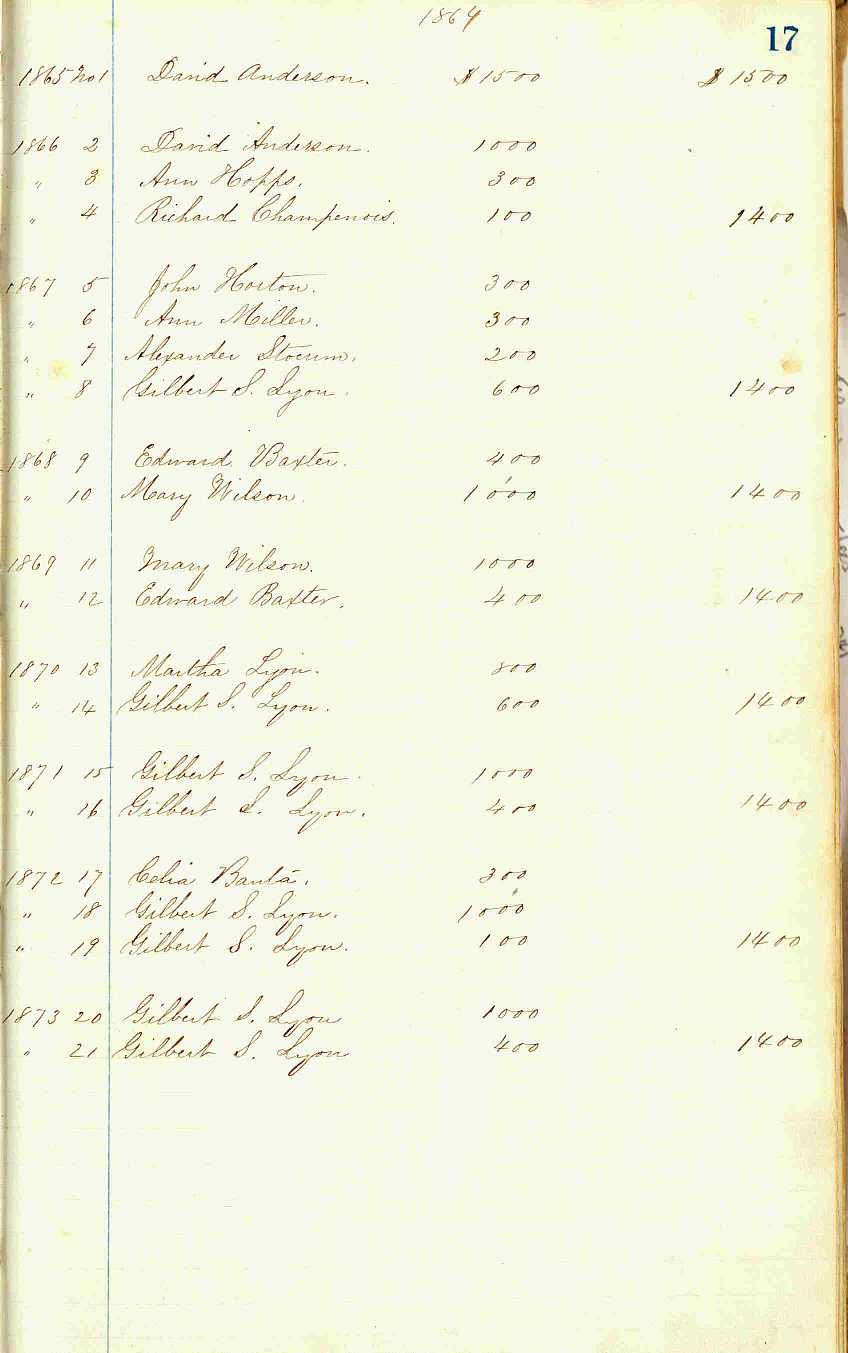 1864
17
1865 No 1 David Anderson. $1500 $1500
1866 2 David Anderson. 1000
" 3 Ann Hopps. 300
" 4 Richard Champenois. 100 1400
1867 5 John Horton. 300
" 6 Ann Miller. 300
" 7 Alexander Stocum. 200
" 8 Gilbert S. Lyon. 600 1400
1868 9 Edward Baxter. 400
" 10 Mary Wilson. 1000 1400
1869 11 Mary Wilson. 1000
" 12 Edward Baxter. 400 1400
1870 13 Martha Lyon. 800
" 14 Gilbert S. Lyon. 600 1400
1871 15 Gilbert S. Lyon. 1000
" 16 Gilbert S. Lyon. 400 1400
1872 17 Celia Banta. 300
" 18 Gilbert S. Lyon. 1000
" 19 Gilbert S. Lyon. 100 1400
1873 20 Gilbert S. Lyon 1000
" 21 Gilbert S. Lyon 400 1400